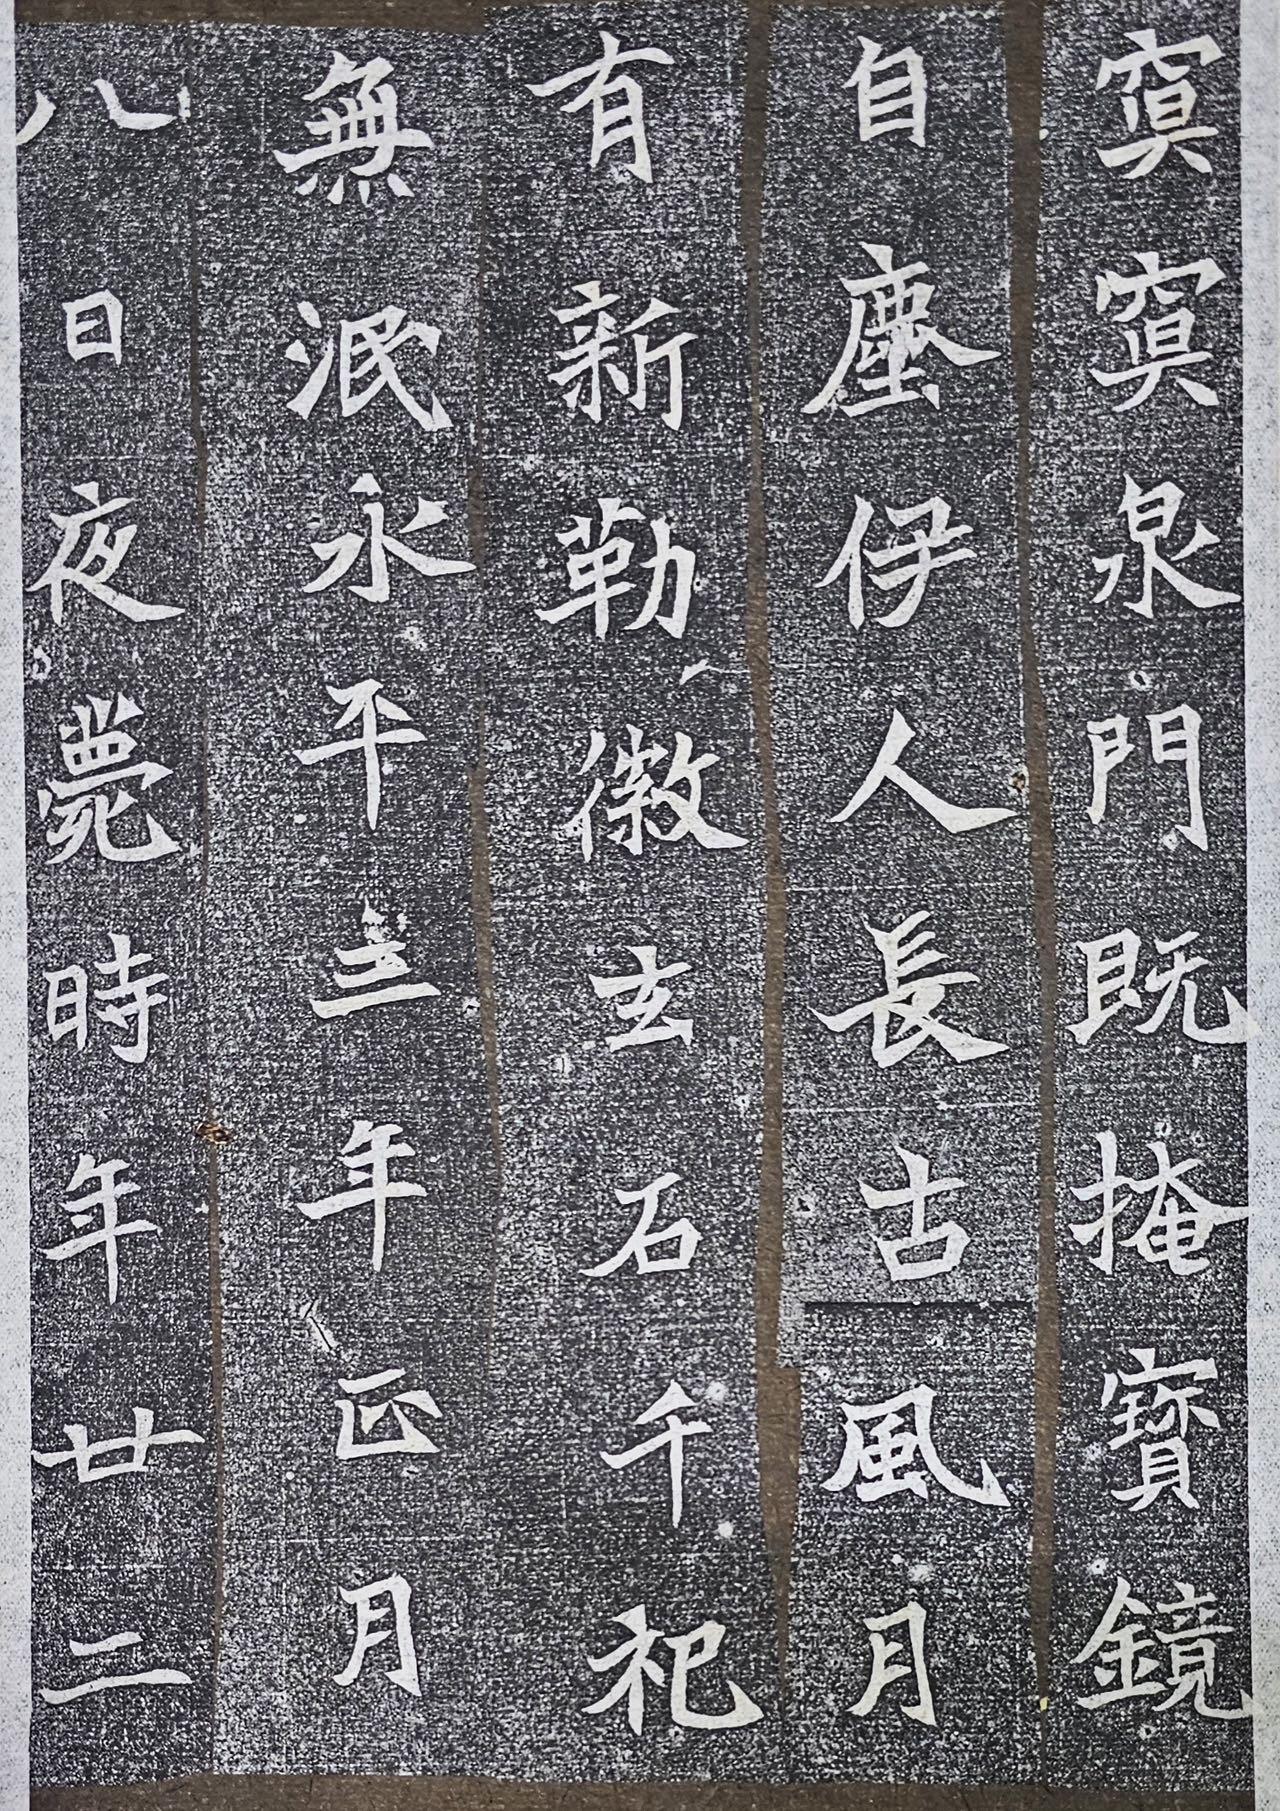 寘寘泉門既掩寶鏡
自塵伊人長古風月
有新勒徽玄石千祀
無泯永平三年正月
八日夜薨時年廿二